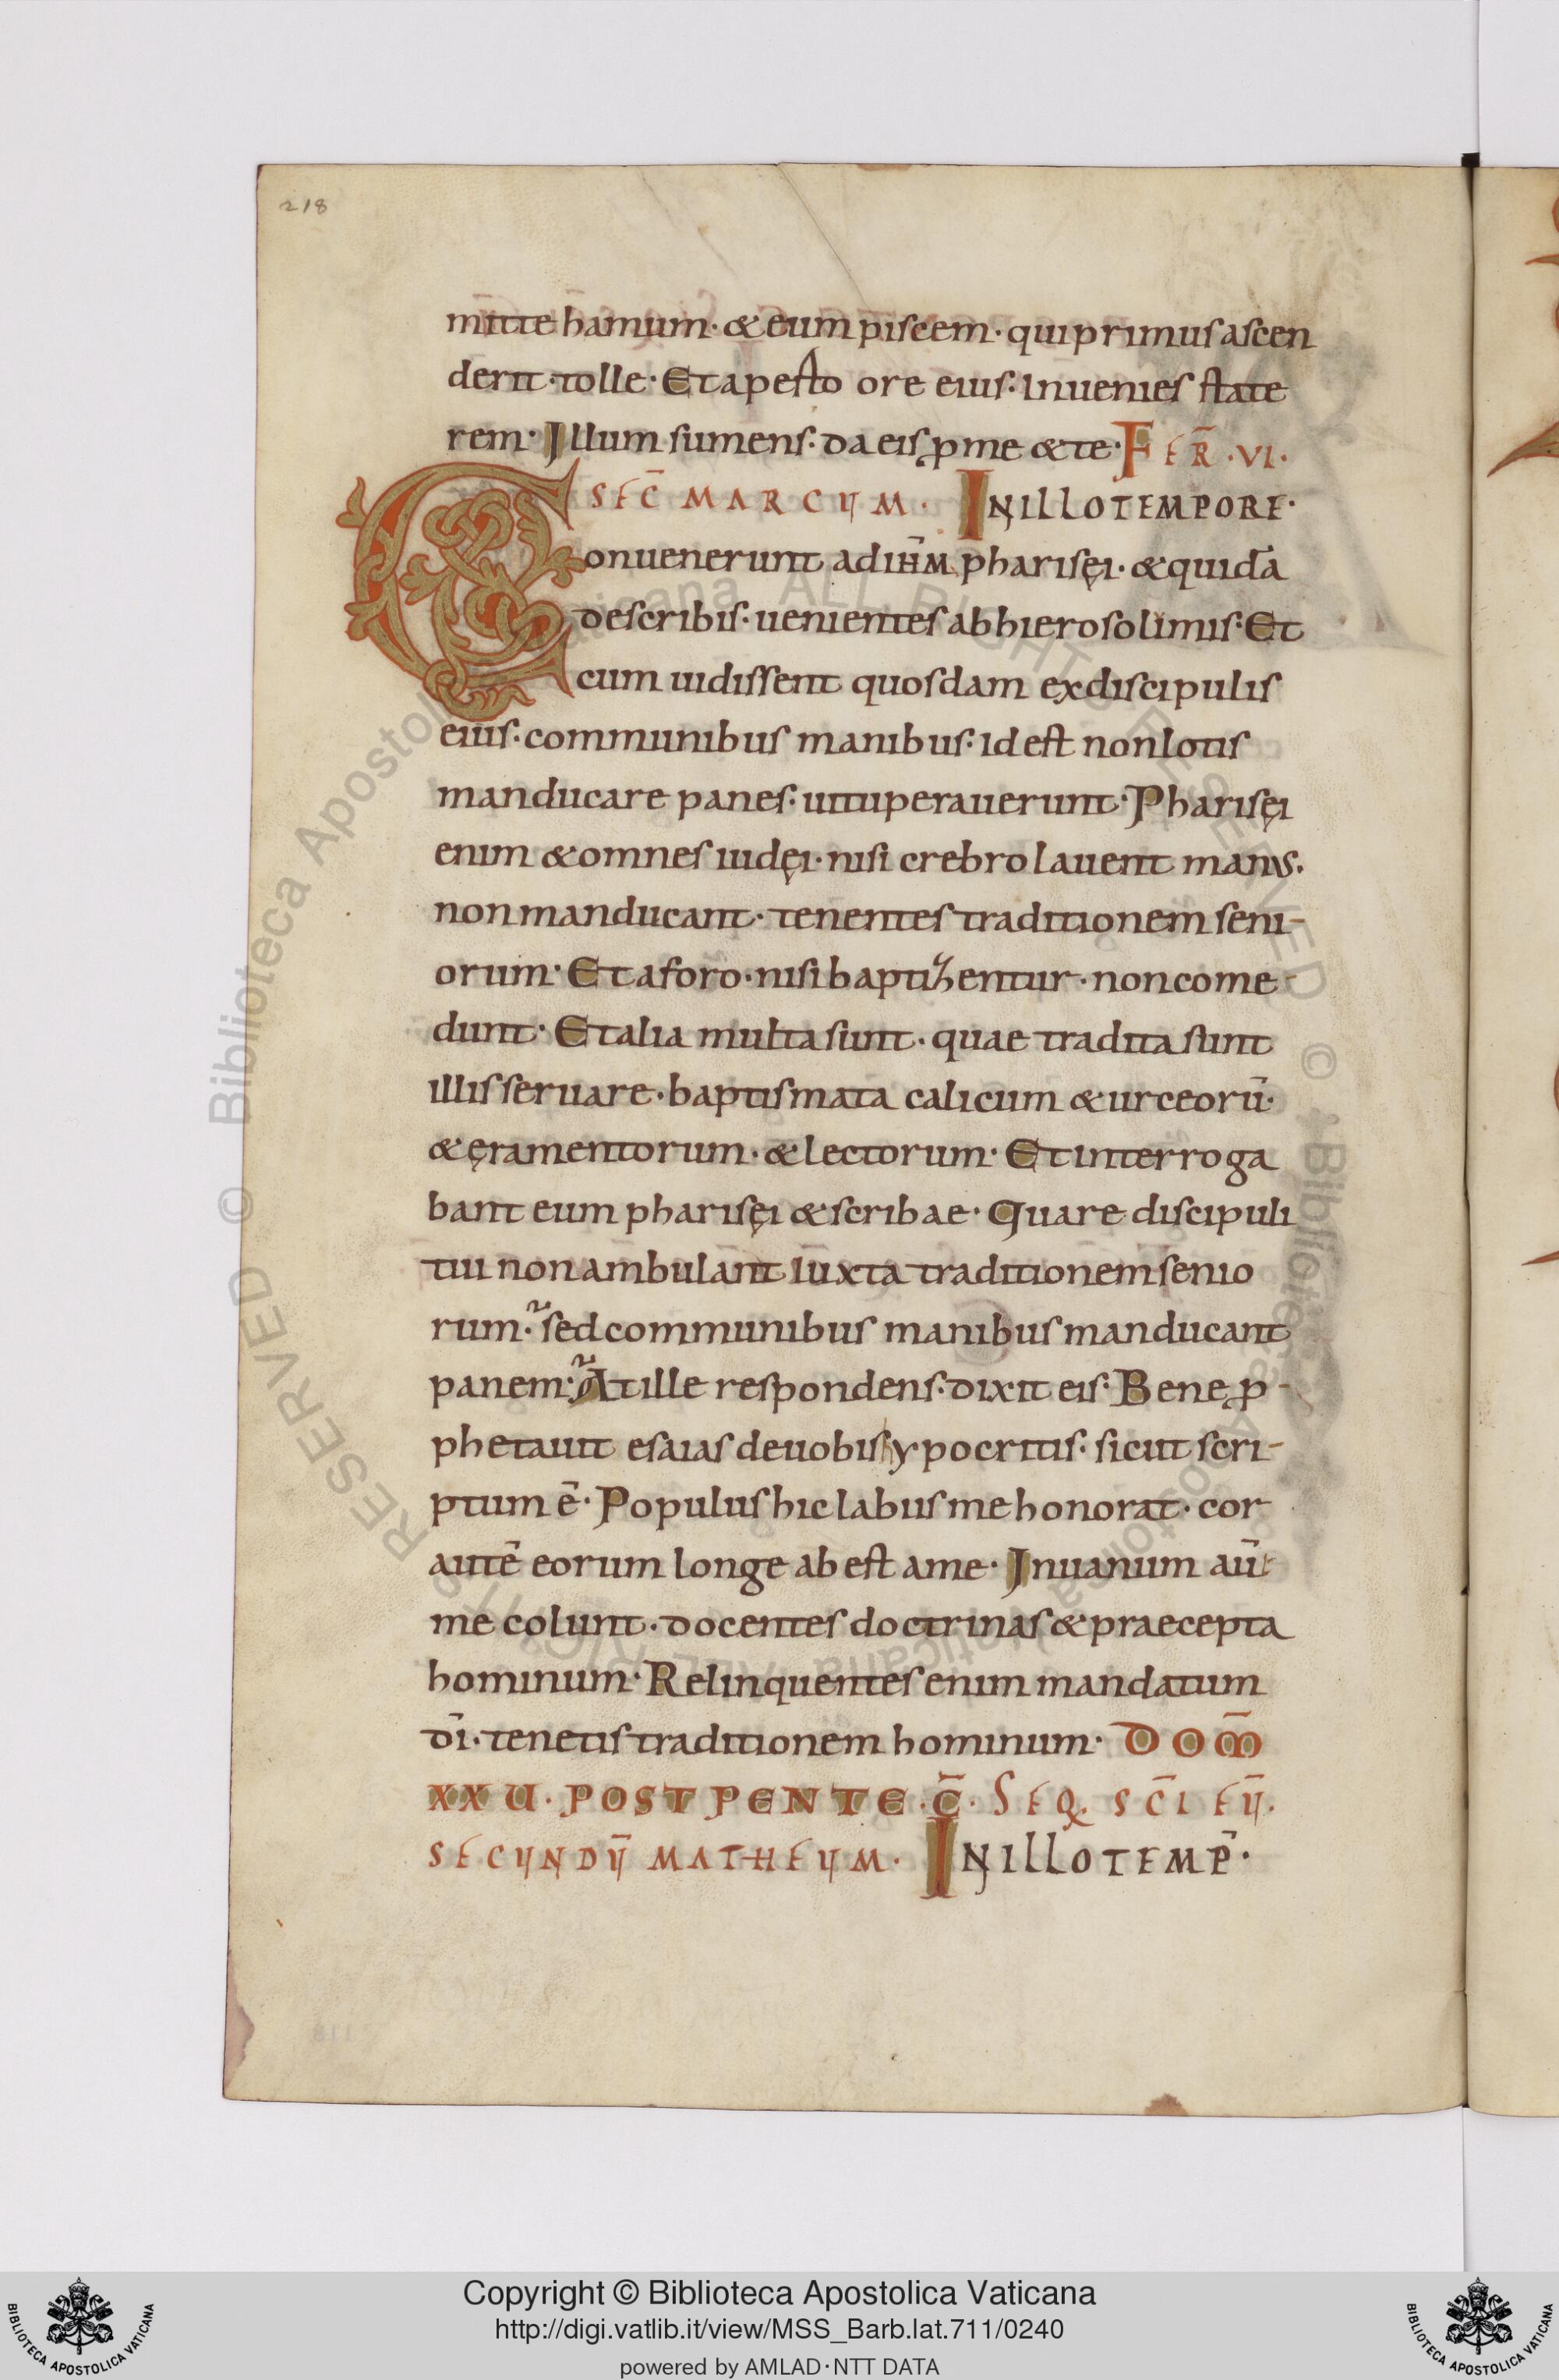 218
mitte hamum· & eum piscem· qui primus ascen
derit· tolle· Et aperto ore eius· inuenies state
rem· Illum sumens· da eis ꝓ me & te· FER̄· VI·
SEC̄ MARCUM· IN ILLO TEMPORE·
Conuenerunt ad ih̄m pharisęi· & quidā
de scribis· uenientes ab hierosolimis· Et
cum uidissent quosdam ex discipulis
eius· communibus manibus· id est non lotis
manducare panes· uituperauerunt· Pharisęi
enim & omnes iudęi· nisi crebro lauent manus·
non manducant· tenentes traditionem seni-
orum· Et a foro· nisi baptizentur· non come-
dunt· Et alia multa sunt· quae tradita sunt
illis seruare· baptismata calicum & urceorū·
& ęramentorum· & lectorum· Et interroga
bant eum pharisęi & scribae· Quare discipuli
tui non ambulant iuxta traditionem senio
rum· sed communibus manibus manducant
panem· At ille respondens· dixit eis· Bene ꝓ-
phetauit esaias de uobis hypocritis· sicut scri-
ptum ē· Populus hic labiis me honorat· cor
autē eorum longe abest a me· In uanum aūt
me colunt· docentes doctrinas & praecepta
hominum· Relinquentes enim mandatum
dī· tenetis traditionem hominum· DOM̄
XXU· POST PENTEC̄· SEQ· SC̄I EŪ·
SECUNDŪ MATHEUM· IN ILLO TEMP̄·
Copyright © Biblioteca Apostolica Vaticana
http://digi.vatlib.it/view/MSS_Barb.lat.711/0240
powered by AMLAD·NTT DATA
BIBLIOTECA APOSTOLICA VATICANA
BIBLIOTECA APOSTOLICA VATICANA